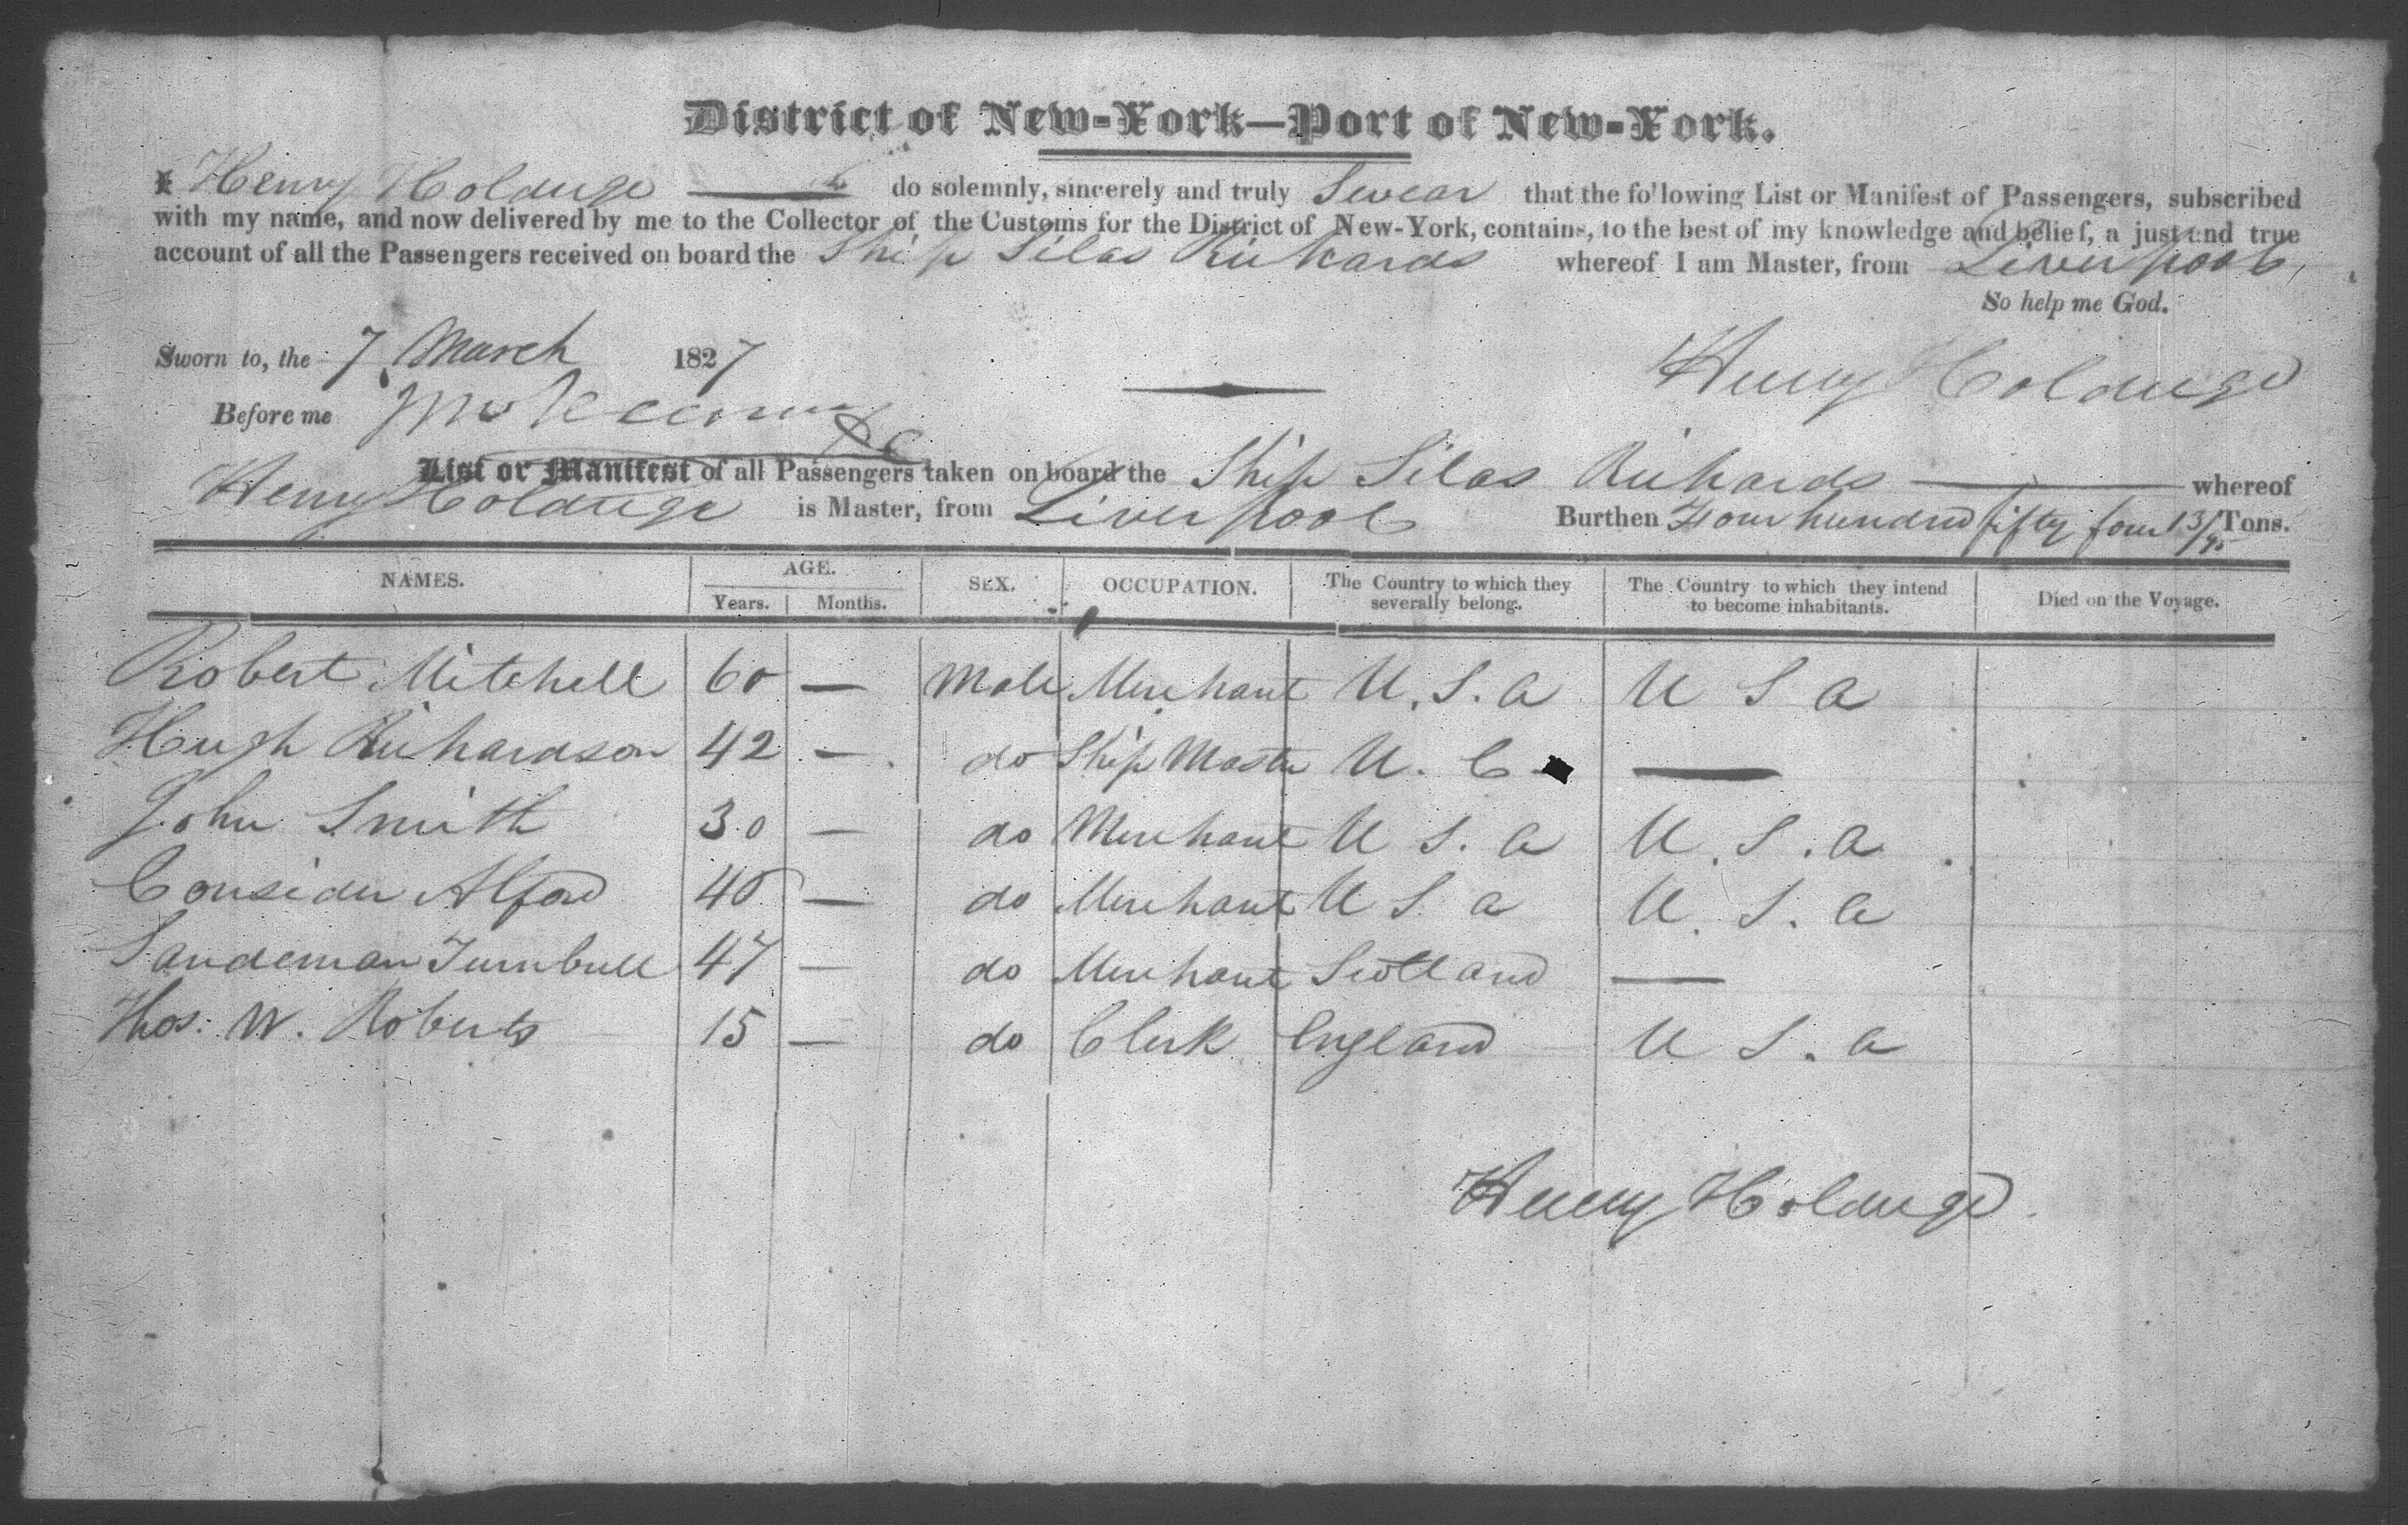 District of New-York—Port of New-York.
I Henry Holdrege do solemnly, sincerely and truly Swear that the following List or Manifest of Passengers, subscribed
with my name, and now delivered by me to the Collector of the Customs for the District of New-York, contains, to the best of my knowledge and belief, a just and true
account of all the Passengers received on board the Ship Silas Richards whereof I am Master, from Liverpool,
So help me God.
Sworn to, the 7 March 1827 Henry Holdrege
Before me
List or Manifest of all Passengers taken on board the Ship Silas Richards whereof
Henry Holdrege is Master, from Liverpool Burthen Four hundred fifty four 13/95 Tons.
NAMES. AGE. SEX. OCCUPATION. The Country to which they severally belong. The Country to which they intend to become inhabitants. Died on the Voyage.
Years. Months.
Robert Mitchell 60 — Male Merchant U.S.A U S A
Hugh Richardson 42 — do Ship Master U. C —
John Smith 30 — do Merchant U S. A U.S.A
Consider Alford 40 — do Merchant U S A U.S.A
Sandeman Turnbull 47 — do Merchant Scotland —
Thos. W. Roberts 15 — do Clerk England U S.A
Henry Holdrege